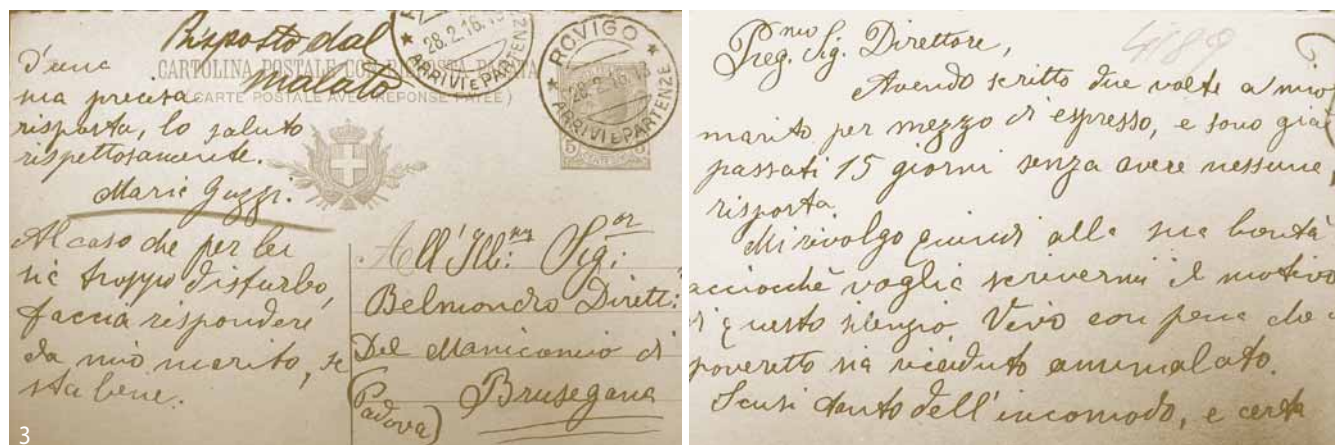 Risposto dal
malato
CARTOLINA POSTALE CON RISPOSTA PAGATA
(CARTE POSTALE AVEC RÉPONSE PAYÉE)
28.2.16.
ARRIVI E PARTENZE
ROVIGO
28.2.16.13
ARRIVI E PARTENZE
D'una
sua precisa
risposta, lo saluto
rispettosamente.
Maria Guzzi.
Al caso che per lei
sia troppo disturbo,
faccia rispondere
da mio marito, se
sta bene.
All'Ill:mo Sig:or
Belmondro Dirett:
Del Manicomio di
Brusegana
(Padova)
3
Preg.mo Sig. Direttore,
4189
Avendo scritto due volte a mio
marito per mezzo di espresso, e sono già
passati 15 giorni senza avere nessuna
risposta.
Mi rivolgo quindi alla sua bontà
acciocchè voglia scrivermi il motivo
di questo silenzio. Vivo con pena che
poveretto sia ricaduto ammalato.
Scusi tanto dell'incomodo, e certa